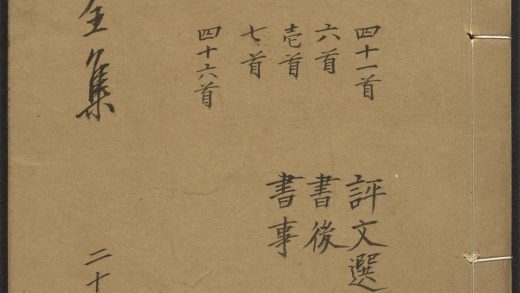 四十一首
六首
壱首
七首
四十六首
評文選
書後
書事
全集
二十